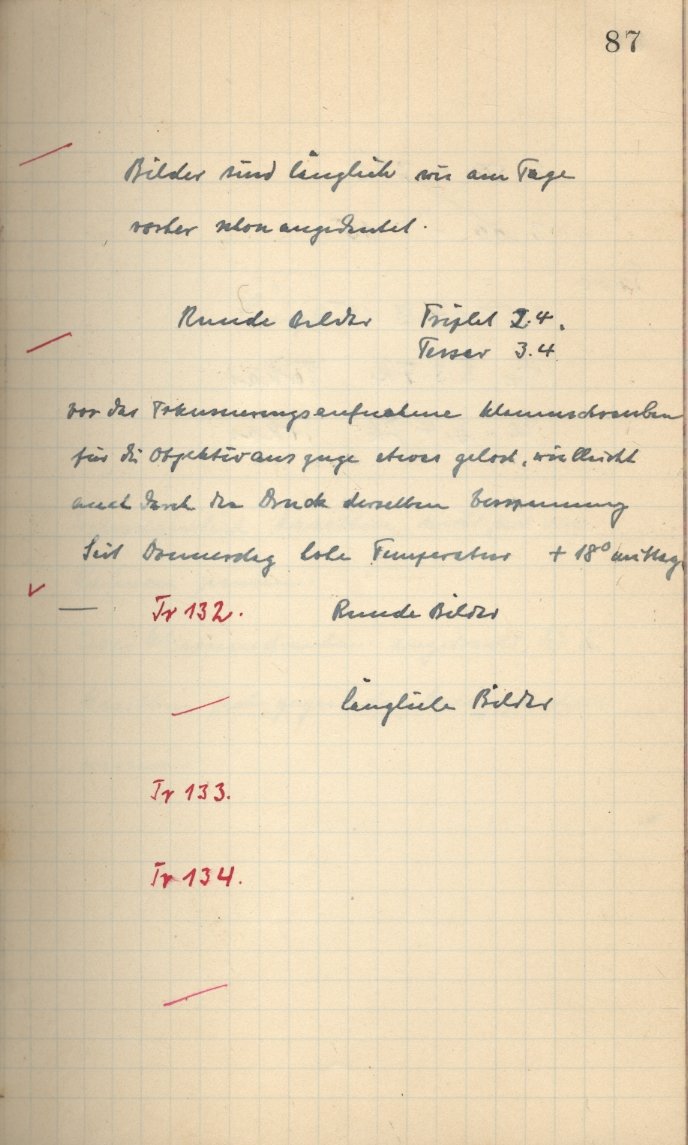 87
Bilder sind länglich wie am Tage
vorher schon angedeutet.
Runde Bilder Triplet 2.4.
Tessar 3.4
vor der Fokussierungsaufnahme Klemmschrauben
für die Objektivauszüge etwas gelöst, vielleicht
auch durch den Druck derselben Verspannung
Seit Donnerstag hohe Temperatur + 18° mittag
— Tr 132. Runde Bilder
längliche Bilder
Tr 133.
Tr 134.